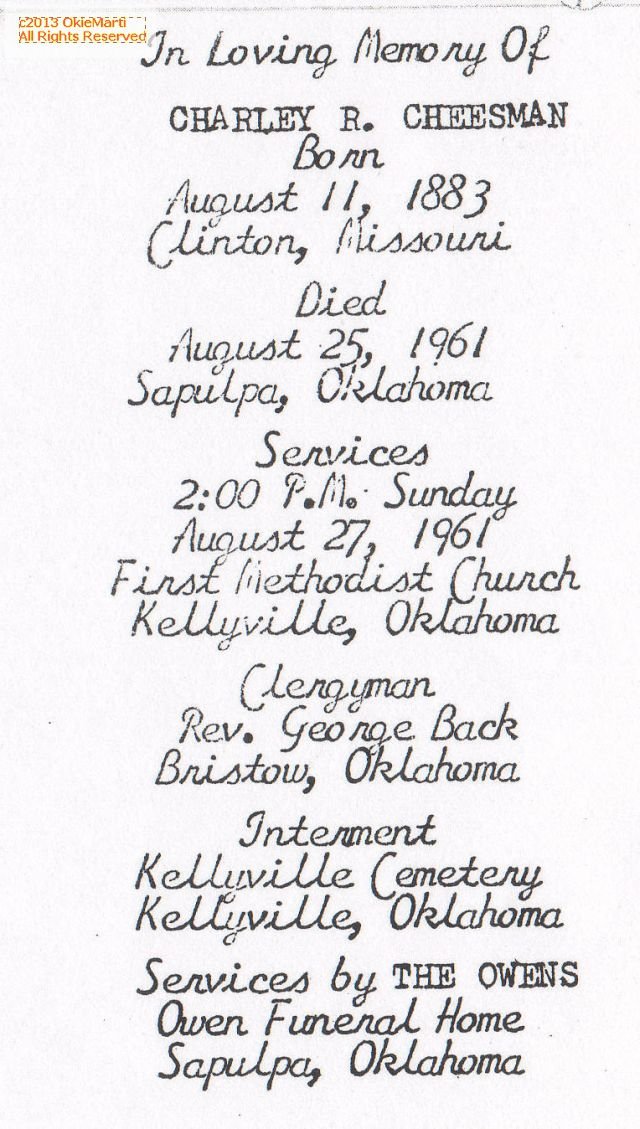 c2013 OkieMarti
All Rights Reserved
In Loving Memory Of
CHARLEY R. CHEESMAN
Born
August 11, 1883
Clinton, Missouri
Died
August 25, 1961
Sapulpa, Oklahoma
Services
2:00 P.M. Sunday
August 27, 1961
First Methodist Church
Kellyville, Oklahoma
Clergyman
Rev. George Back
Bristow, Oklahoma
Interment
Kellyville Cemetery
Kellyville, Oklahoma
Services by THE OWENS
Owen Funeral Home
Sapulpa, Oklahoma